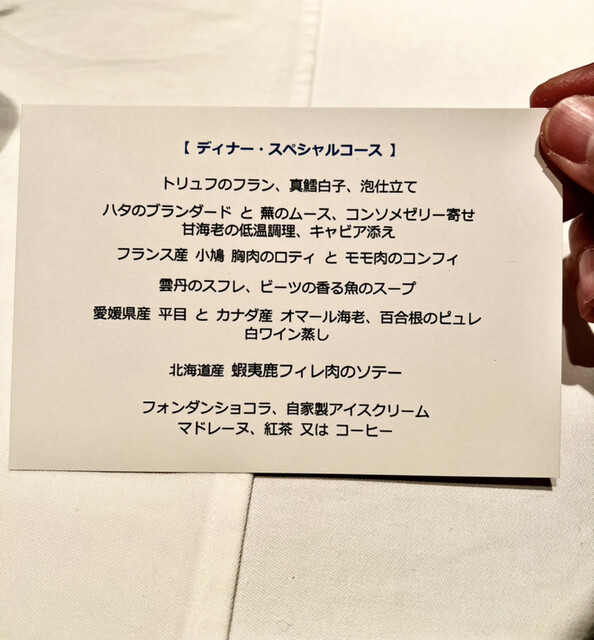 【 ディナー・スペシャルコース 】
トリュフのフラン、真鱈白子、泡仕立て
ハタのブランダード と 蕪のムース、コンソメゼリー寄せ
甘海老の低温調理、キャビア添え
フランス産 小鳩 胸肉のロティ と モモ肉のコンフィ
雲丹のスフレ、ビーツの香る魚のスープ
愛媛県産 平目 と カナダ産 オマール海老、百合根のピュレ
白ワイン蒸し
北海道産 蝦夷鹿フィレ肉のソテー
フォンダンショコラ、自家製アイスクリーム
マドレーヌ、紅茶 又は コーヒー